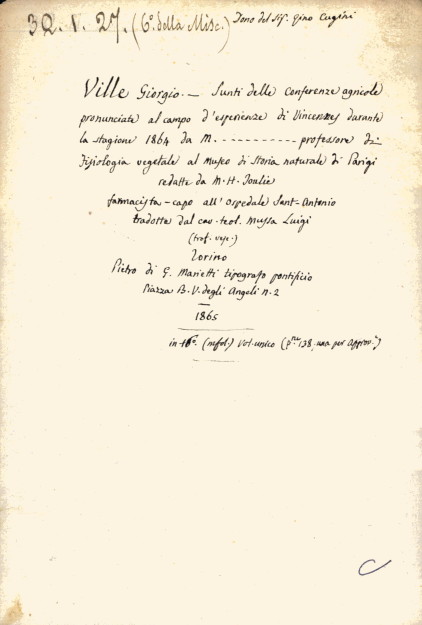 32.1.27. (6º. della Misc.) Dono del Sig. Gino Cugini
Ville Giorgio. — Sunti delle conferenze agricole
pronunciate al campo d'esperienze di Vincennes durante
la stagione 1864 da M. - - - - - - - - - professore di
Fisiologia vegetale al Museo di Storia naturale di Parigi
redatte da M. H. Joulie
farmacista-capo all'ospedale Sant-Antonio
tradotte dal cav. teol. Mussa Luigi
Torino
Pietro di G. Marietti tipografo pontificio
Piazza B. V. degli Angeli n. 2
1865
in-16º. (mfol.) Vol. unico (pne 138, una per Approv.)
C